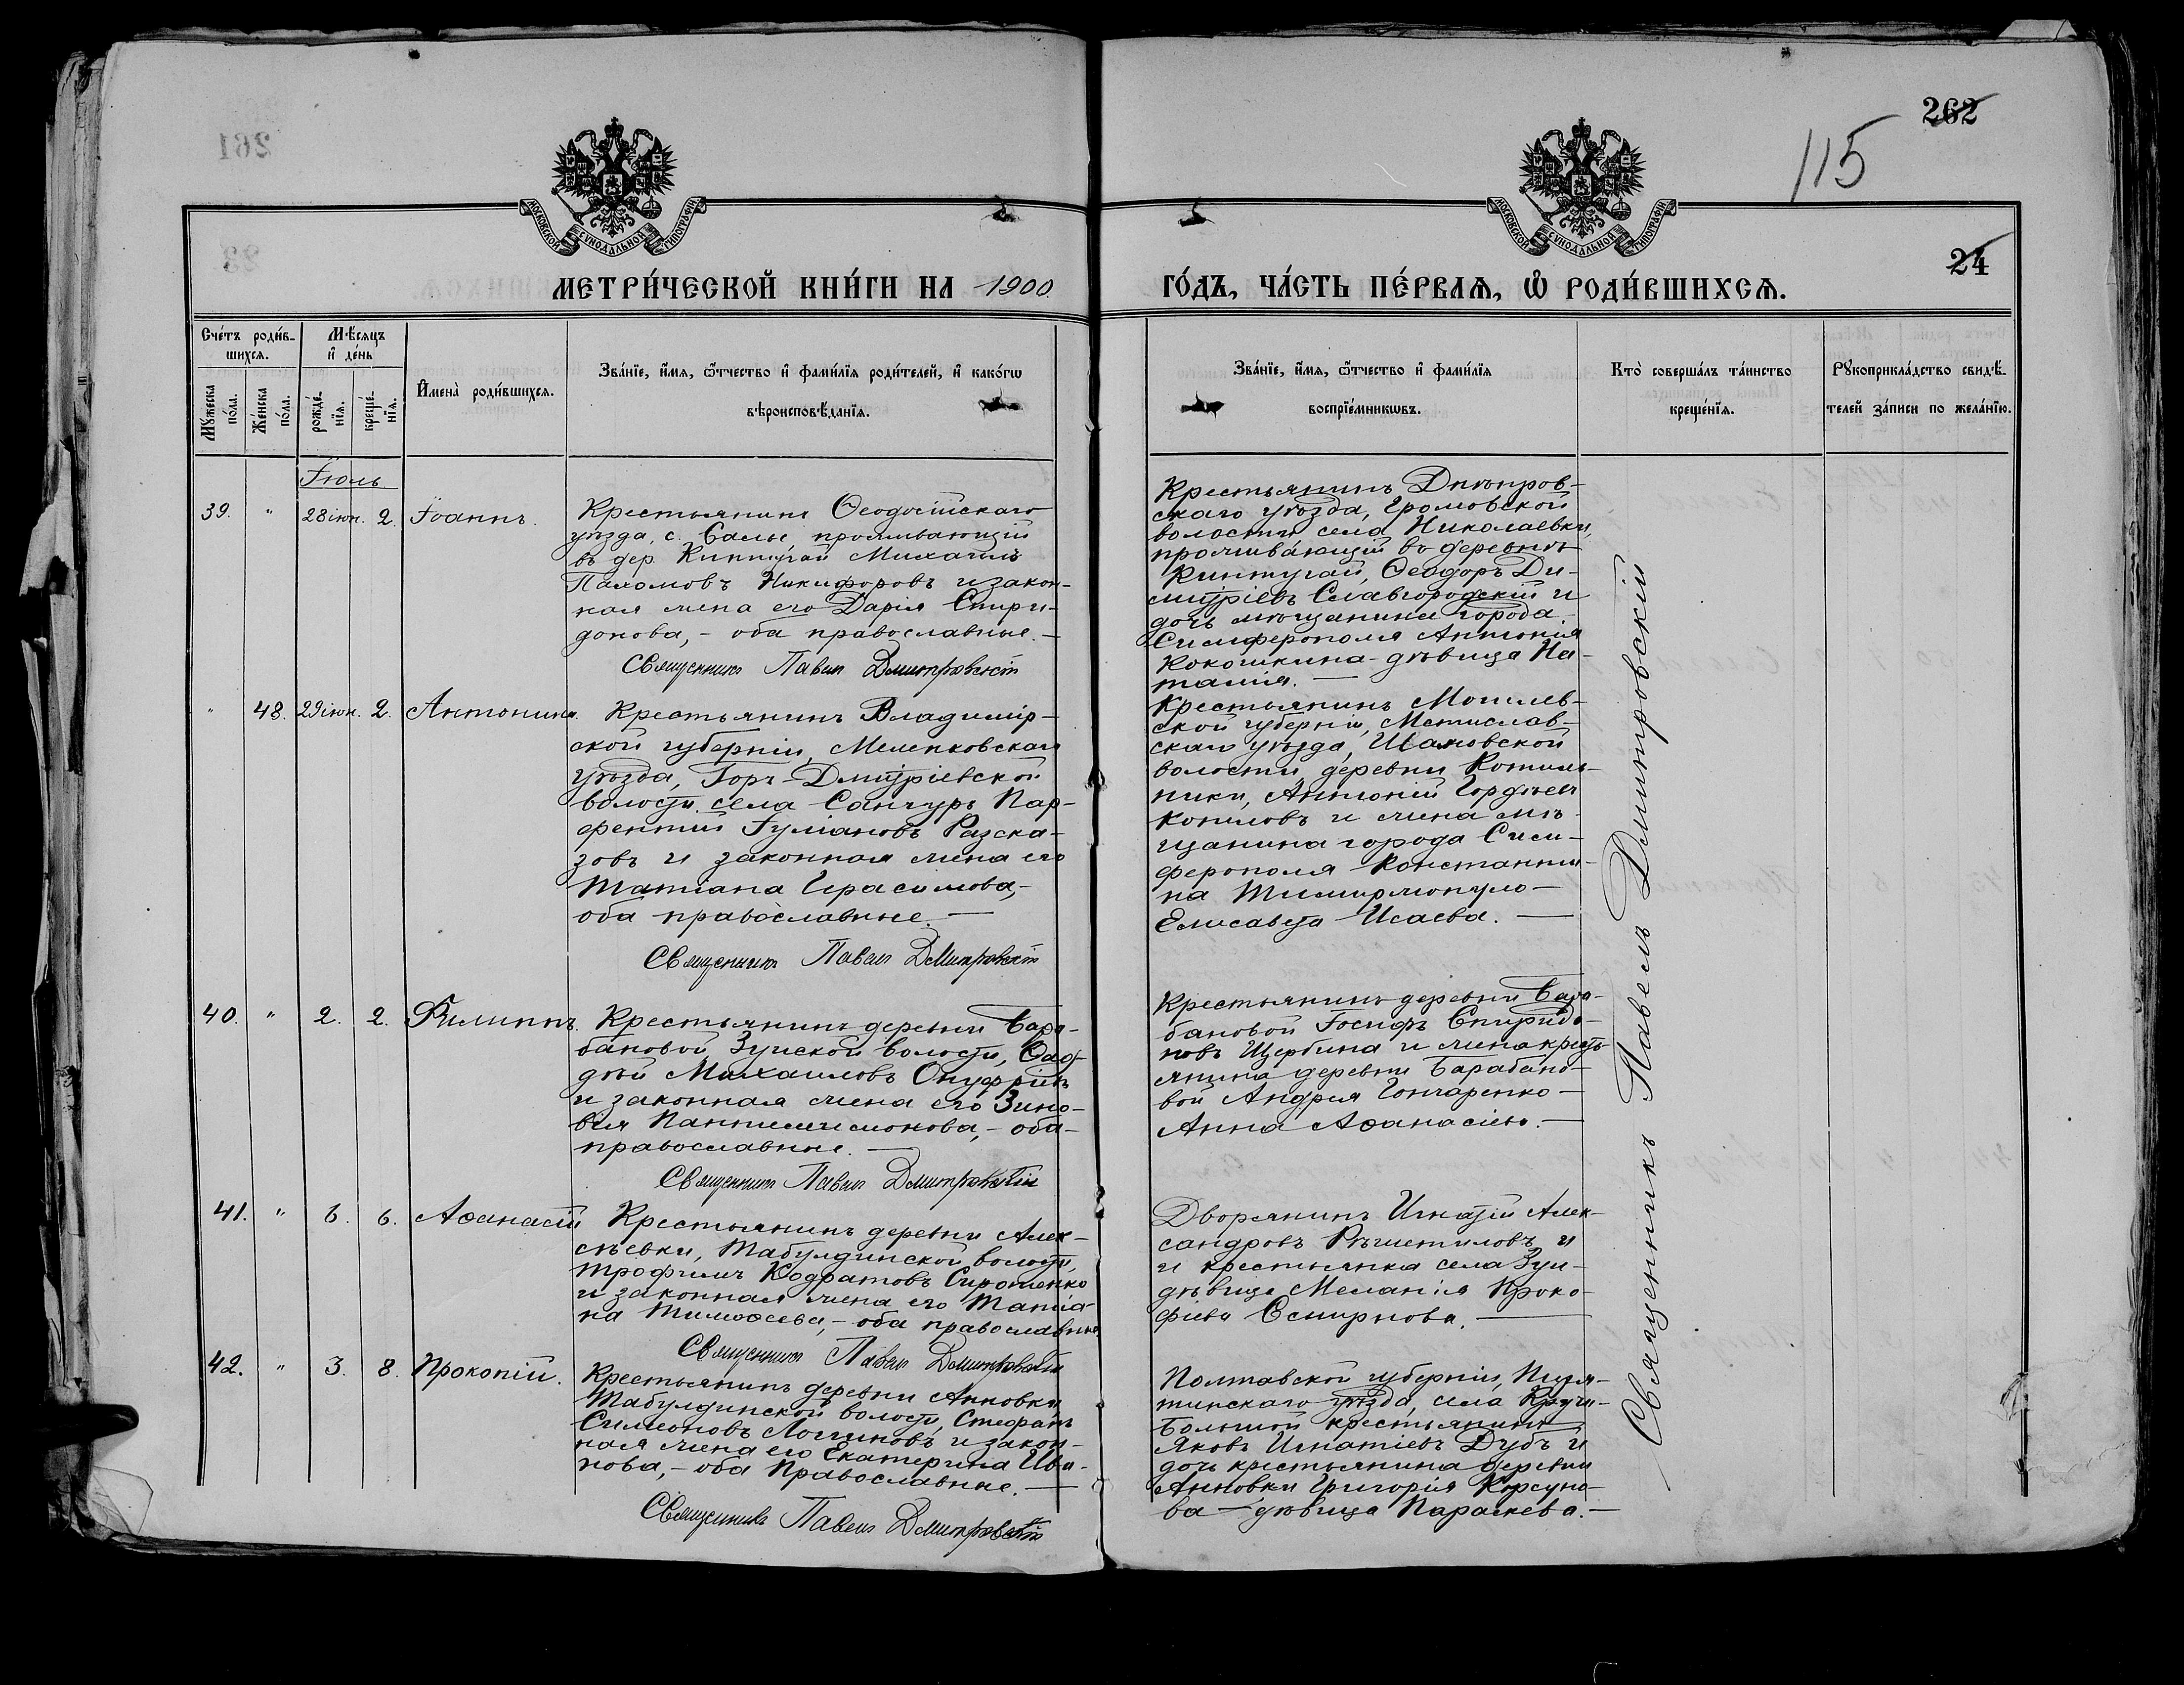 262
115
МОСКОВСКОЙ СУНОДАЛЬНОЙ ТИПОГРАФІИ
МОСКОВСКОЙ СУНОДАЛЬНОЙ ТИПОГРАФІИ
24
МЕТРИ́ЧЕСКОЙ КНИ́ГИ НА 1900
ГО́ДЪ, ЧА́СТЬ ПЕ́РВАѦ, Ѡ РОДИ́ВШИХСѦ.
Сче́тъ роди́в-
шихсѧ.
Мꙋжеска по́ла.
Же́нска по́ла.
Мѣ́сяцъ
и҆ де́нь
рожде́нїѧ.
креще́нїѧ.
И҆мена̀ роди́вшихсѧ.
Зва́нїе, и҆́мѧ, ѻ҆́тчество и҆ фами́лїѧ роди́телей, и҆ како́гѡ
вѣроисповѣ́данїѧ.
Зва́нїе, и҆́мѧ, ѻ҆́тчество и҆ фами́лїѧ
воспрїе́мникѡвъ.
Кто̀ соверша́лъ та́инство
креще́нїѧ.
Рꙋкоприкла́дство свидѣ́-
телей за́писи по жела́нїю.
Іюль
39. " 28 іюн. 2. Іоаннъ.
Крестьянинъ Ѳеодосійскаго
уѣзда, с. Салы проживающій
въ дер. Кинтугай Михаилъ
Пахомовъ Никифоровъ и закон-
ная жена его Дарія Спири-
донова, - оба православные. -
Священникъ Павелъ Дмитровскій
Крестьянинъ Днѣпров-
скаго уѣзда, Громовской
волости села Николаевки,
проживающій въ деревнѣ
Кинтугай, Ѳеодоръ Ди-
митріевъ Славгородскій и
дочь мѣщанина города
Симферополя Антонія
Кокошкина - дѣвица На-
талія. -
" 48. 29 іюн. 2. Антонина.
Крестьянинъ Владимір-
ской губерніи, Меленковскаго
уѣзда, Дмитріевской
волости села Санчуръ Пар-
фентій Іуліановъ Разска-
зовъ и законная жена его
Татіана Герасимова, -
оба православные. -
Священникъ Павелъ Дмитровскій
Крестьянинъ Могилев-
ской губерніи, Мстислав-
скаго уѣзда, Шамовской
волости деревни Котель-
ники, Антоній Гордѣевъ
Копыловъ и жена мѣ-
щанина города Сим-
ферополя Константи-
на
Елисавета Исаева. -
40. " 2. 2. Филиппъ.
Крестьянинъ деревни Бара-
бановой Зуйской волости, Ѳад-
дей Михаиловъ Онуфріевъ
и законная жена его Зино-
вія Пантелеимонова, - оба
православные. -
Священникъ Павелъ Дмитровскій
Крестьянинъ деревни Бара-
бановой Іосифъ Спиридо-
новъ Щербина и жена кресть-
янина деревни Барабано-
вой Андрея Гончаренко -
Анна Аѳанасіева. -
41. " 6. 6. Аѳанасій
Крестьянинъ деревни Алек-
сѣевки, Табулдинской волости,
Трофимъ Кодратовъ Сироженко
и законная жена его Татіа-
на Тимоѳеева, - оба православные.
Священникъ Павелъ Дмитровскій
Дворянинъ Игнатій Алек-
сандровъ Рѣшетиловъ и
и крестьянка села Зуи -
дѣвица Меланія Проко-
фіева Смирнова. -
42. " 3. 8. Прокопій.
Крестьянинъ деревни Анновки,
Табулдинской волости, Стефанъ
Симеоновъ Логгиновъ и закон-
ная жена его Екатерина Ива-
нова, - оба Православные. -
Священникъ Павелъ Дмитровскій
Полтавской губерніи, Пиря-
тинскаго уѣзда, села Кручи-
Большой крестьянинъ
Яковъ Игнатіевъ Дубъ и
дочь крестьянина деревни
Анновки Григорія Корсуно-
ва - дѣвица Параскева. -
Священникъ Павелъ Дмитровскій